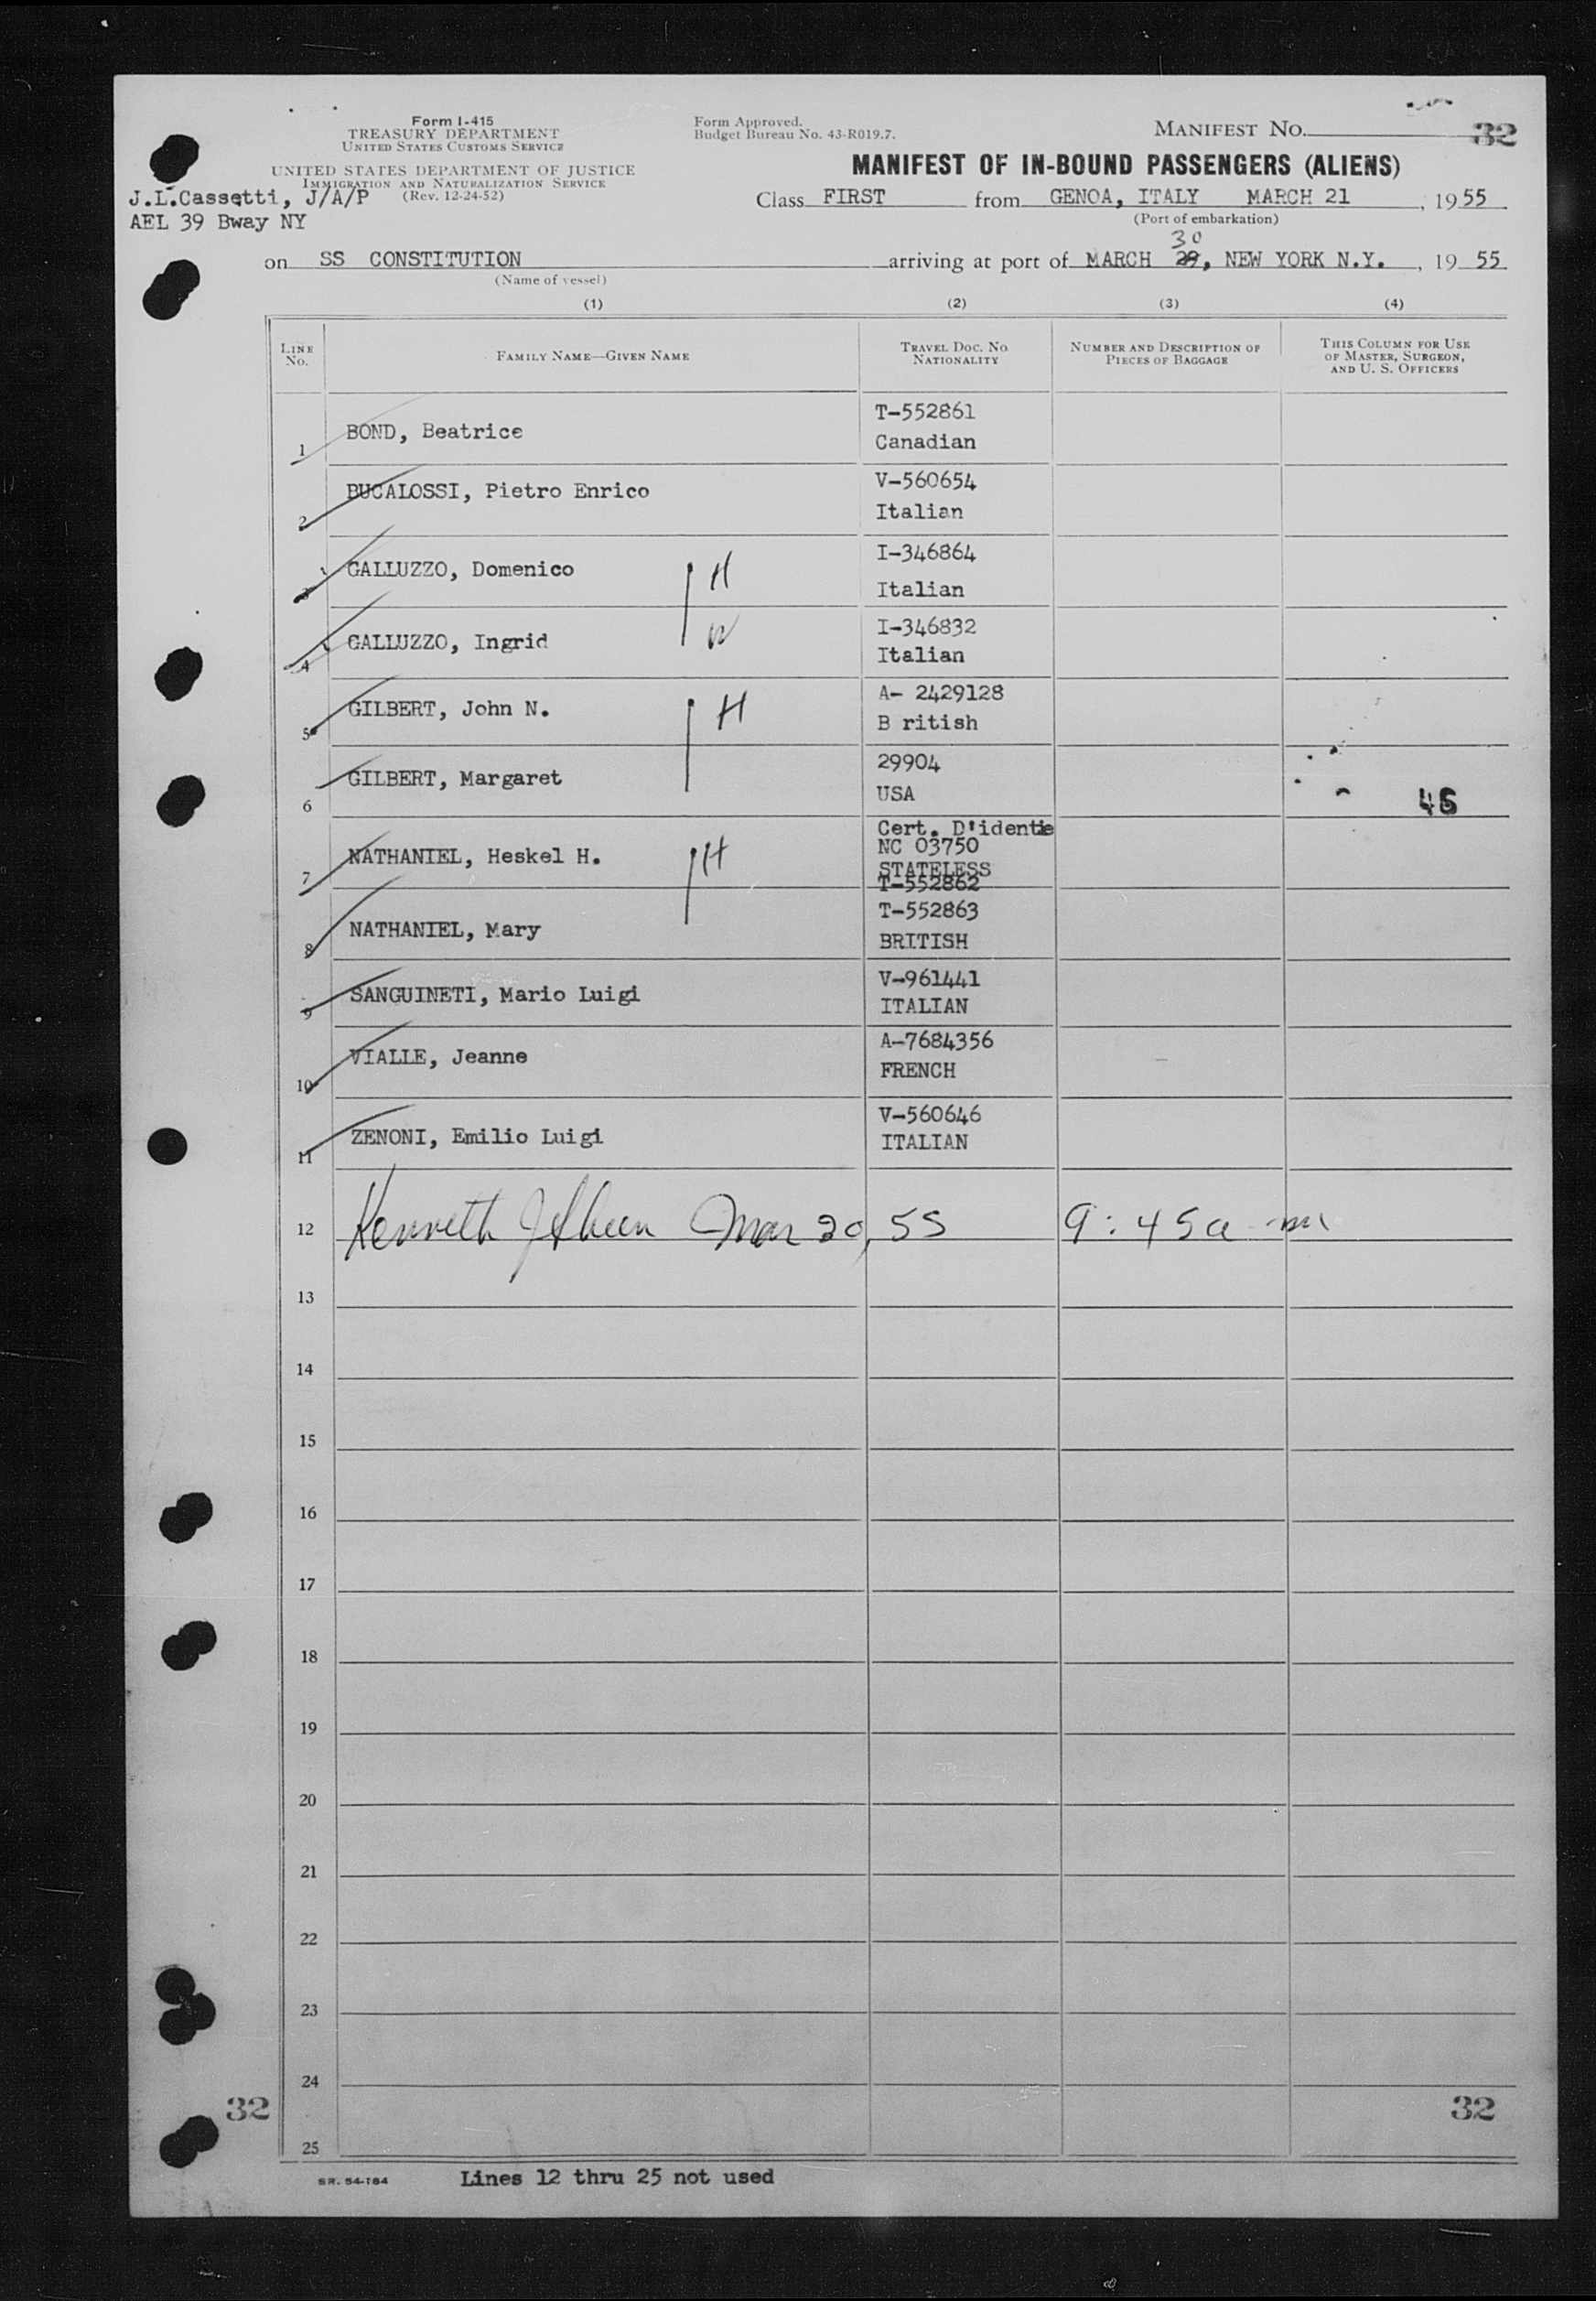 Form I-415
TREASURY DEPARTMENT
UNITED STATES CUSTOMS SERVICE
UNITED STATES DEPARTMENT OF JUSTICE
IMMIGRATION AND NATURALIZATION SERVICE
(Rev. 12-24-52)
J.L.Cassetti, J/A/P
AEL 39 Bway NY
Form Approved.
Budget Bureau No. 43-R019.7.
MANIFEST NO. 32
MANIFEST OF IN-BOUND PASSENGERS (ALIENS)
Class FIRST from GENOA, ITALY MARCH 21, 1955
(Port of embarkation)
30
on SS CONSTITUTION arriving at port of MARCH 29, NEW YORK N.Y., 19 55
(Name of vessel)
(1) (2) (3) (4)
LINE NO. FAMILY NAME—GIVEN NAME TRAVEL DOC. NO. NATIONALITY NUMBER AND DESCRIPTION OF PIECES OF BAGGAGE THIS COLUMN FOR USE OF MASTER, SURGEON, AND U. S. OFFICERS
1 BOND, Beatrice T-552861
Canadian
2 BUCALOSSI, Pietro Enrico V-560654
Italian
3 GALLUZZO, Domenico H I-346864
Italian
4 GALLUZZO, Ingrid W I-346832
Italian
5 GILBERT, John N. H A- 2429128
B ritish
6 GILBERT, Margaret 29904
USA 46
7 NATHANIEL, Heskel H. H Cert. D'identie
NC 03750
STATELESS
T-552862
8 NATHANIEL, Mary T-552863
BRITISH
9 SANGUINETI, Mario Luigi V-961441
ITALIAN
10 VIALLE, Jeanne A-7684356
FRENCH
11 ZENONI, Emilio Luigi V-560646
ITALIAN
12 Kenneth Mar 30, 55 9:45 a m
13
14
15
16
17
18
19
20
21
22
23
24
25
32 32
SR. 54-184 Lines 12 thru 25 not used